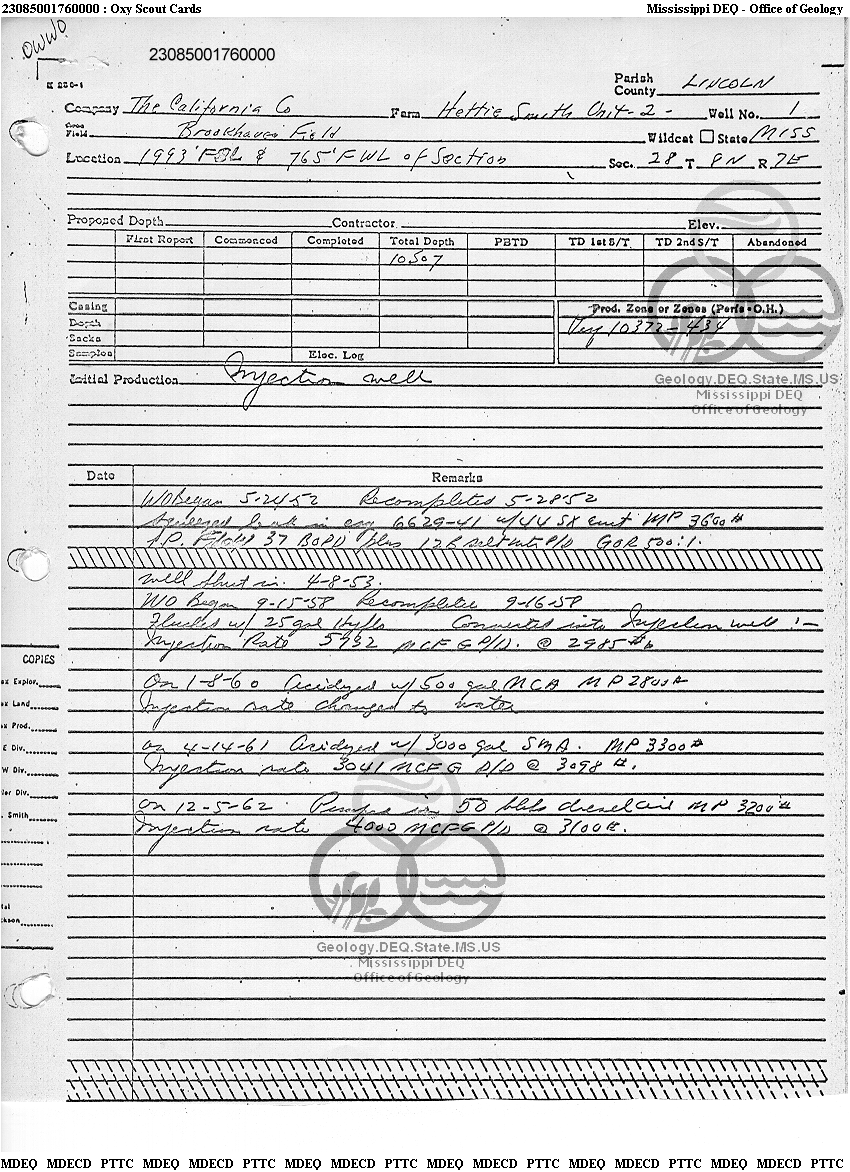 23085001760000 : Oxy Scout Cards Mississippi DEQ - Office of Geology
OWWO
23085001760000
Parish
County LINCOLN
Company The California Co Farm Hettie Smith Unit-2- Well No. 1
Field Brookhaven Field Wildcat State MISS
Location 1993' FSL & 765' FWL of Section Sec. 28 T 8N R 7E
Proposed Depth Contractor Elev.
First Report Commenced Completed Total Depth PBTD TD 1st S/T TD 2nd S/T Abandoned
10507
Casing Prod. Zone or Zones (Perfs • O.H.)
Depth 10372-434
Sacks
Samples Elec. Log
Initial Production Injection well
Geology.DEQ.State.MS.US
Mississippi DEQ
Office of Geology
Date Remarks
WO Began 5-24-52 Recompleted 5-28-52
Squeezed leak in csg 6629-41 w/44 SX cmt MP 3600#
I.P. Flowed 37 BOPD plus 128 salt wtr P/D GOR 500:1.
Well shut in. 4-8-53.
WO Began 9-15-58 Recompleted 9-16-58
w/ 25 gal Hyflo Converted into Injection well :-
Injection Rate 5932 MCFG P/D. @ 2985#
COPIES
ex Explor.
On 1-8-60 Acidized w/ 500 gal MCA MP 2800#
ex Land
Injection rate changed to water
ex Prod.
E Div.
on 4-14-61 Acidized w/ 3000 gal SMA. MP 3300#
W Div.
Injection rate 3041 MCFG P/D @ 3098 #.
ler Div.
on 12-5-62. Pumped in 50 bbls diesel oil MP 3200#
. Smith
Injection rate 4000 MCFG P/D @ 3100#.
tal
ckson
Geology.DEQ.State.MS.US
Mississippi DEQ
Office of Geology
MDEQ MDECD PTTC MDEQ MDECD PTTC MDEQ MDECD PTTC MDEQ MDECD PTTC MDEQ MDECD PTTC MDEQ MDECD PTTC